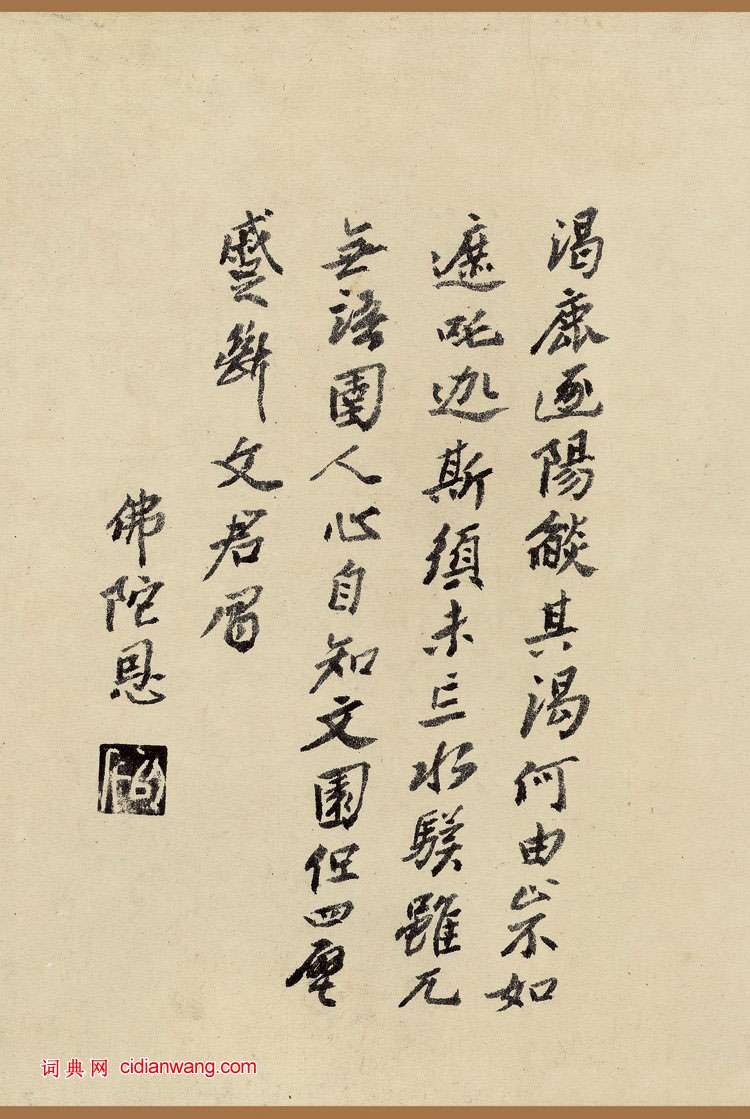 渴鹿逐陽燄其渴何由止不如
遮吒迦斯須未亡水雖兀
無語圉人心自知文園但四壁
蹙斷文君眉
佛陀恩
词典网 cidianwang.com